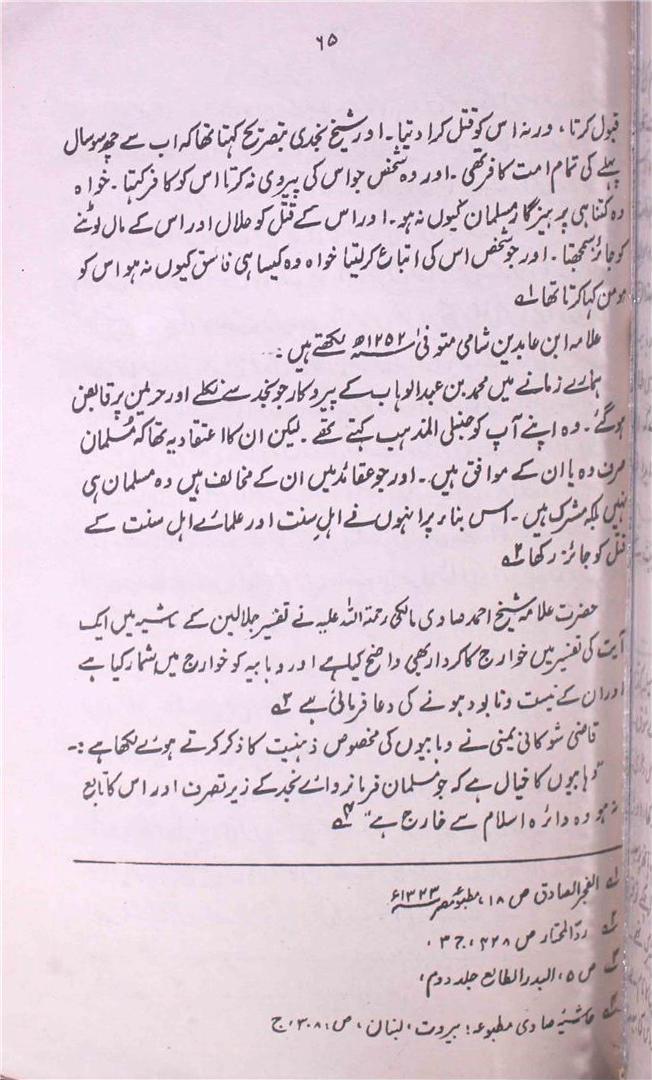 ۶۵
قبول کرتا، ورنہ اس کو قتل کرا دیتا۔ اور شیخ نجدی بتصریح کہتا تھا کہ اب سے چھ سو سال
پہلے کی تمام امت کافر تھی۔ اور وہ شخص جو اس کی پیروی نہ کرتا اس کو کافر کہتا۔ خواہ
وہ کتنا ہی پرہیزگار مسلمان کیوں نہ ہو۔ اور اس کے قتل کو حلال اور اس کے مال لوٹنے
کو جائز سمجھتا۔ اور جو شخص اس کی اتباع کر لیتا خواہ وہ کیسا ہی فاسق کیوں نہ ہو اس کو
مومن کہا کرتا تھا ۱؎
علامہ ابن عابدین شامی متوفیٰ ۱۲۵۲ھ لکھتے ہیں:۔
ہمارے زمانے میں محمد بن عبدالوہاب کے پیروکار جو نجد سے نکلے اور حرمین پر قابض
ہو گئے۔ وہ اپنے آپ کو حنبلی المذہب کہتے تھے۔ لیکن ان کا اعتقاد یہ تھا کہ مُسلمان
صرف وہ یا ان کے موافق ہیں۔ اور جو عقائد میں ان کے مخالف ہیں وہ مسلمان ہی
نہیں بلکہ مشرک ہیں۔ اس بناء پر انہوں نے اہلِ سنت اور علمائے اہل سنت کے
قتل کو جائز رکھا ۲؎
حضرت علامہ شیخ احمد صاوی مالکی رحمۃ اللہ علیہ نے تفسیر جلالین کے حاشیہ میں ایک
آیت کی تفسیر میں خوارج کا کردار بھی واضح کیا ہے اور وہابیہ کو خوارج میں شمار کیا ہے
اور ان کے نیست و نابود ہونے کی دعا فرمائی ہے ۳؎
قاضی شوکانی یمنی نے وہابیوں کی مخصوص ذہنیت کا ذکر کرتے ہوئے لکھا ہے:۔
"وہابیوں کا خیال ہے کہ جو مسلمان فرمانروائے نجد کے زیر تصرف اور اس کا تابع
نہ ہو وہ دائرہ اسلام سے خارج ہے" ۴؎
۱؎ الفجر الصادق ص ۱۸، مطبوعہ مصر ۱۳۲۳ء
۲؎ ردّ المختار ص ۳۲۸، ج ۳،
۳؎ ص ۵، البدر الطالع جلد دوم،
۴؎ حاشیہ صاوی مطبوعہ: بیروت، لبنان، ص: ۳۰۸، ج